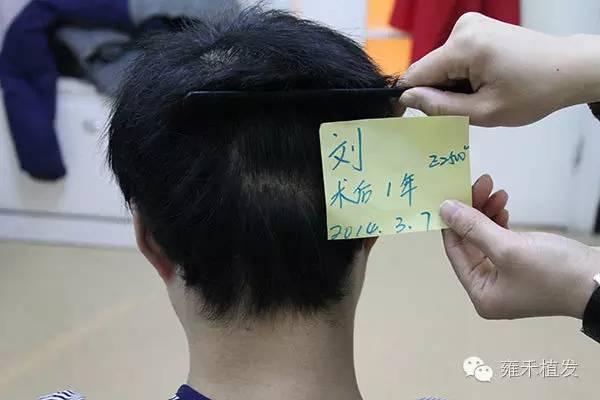 刘
术后1年
2014.3.7
雍禾植发